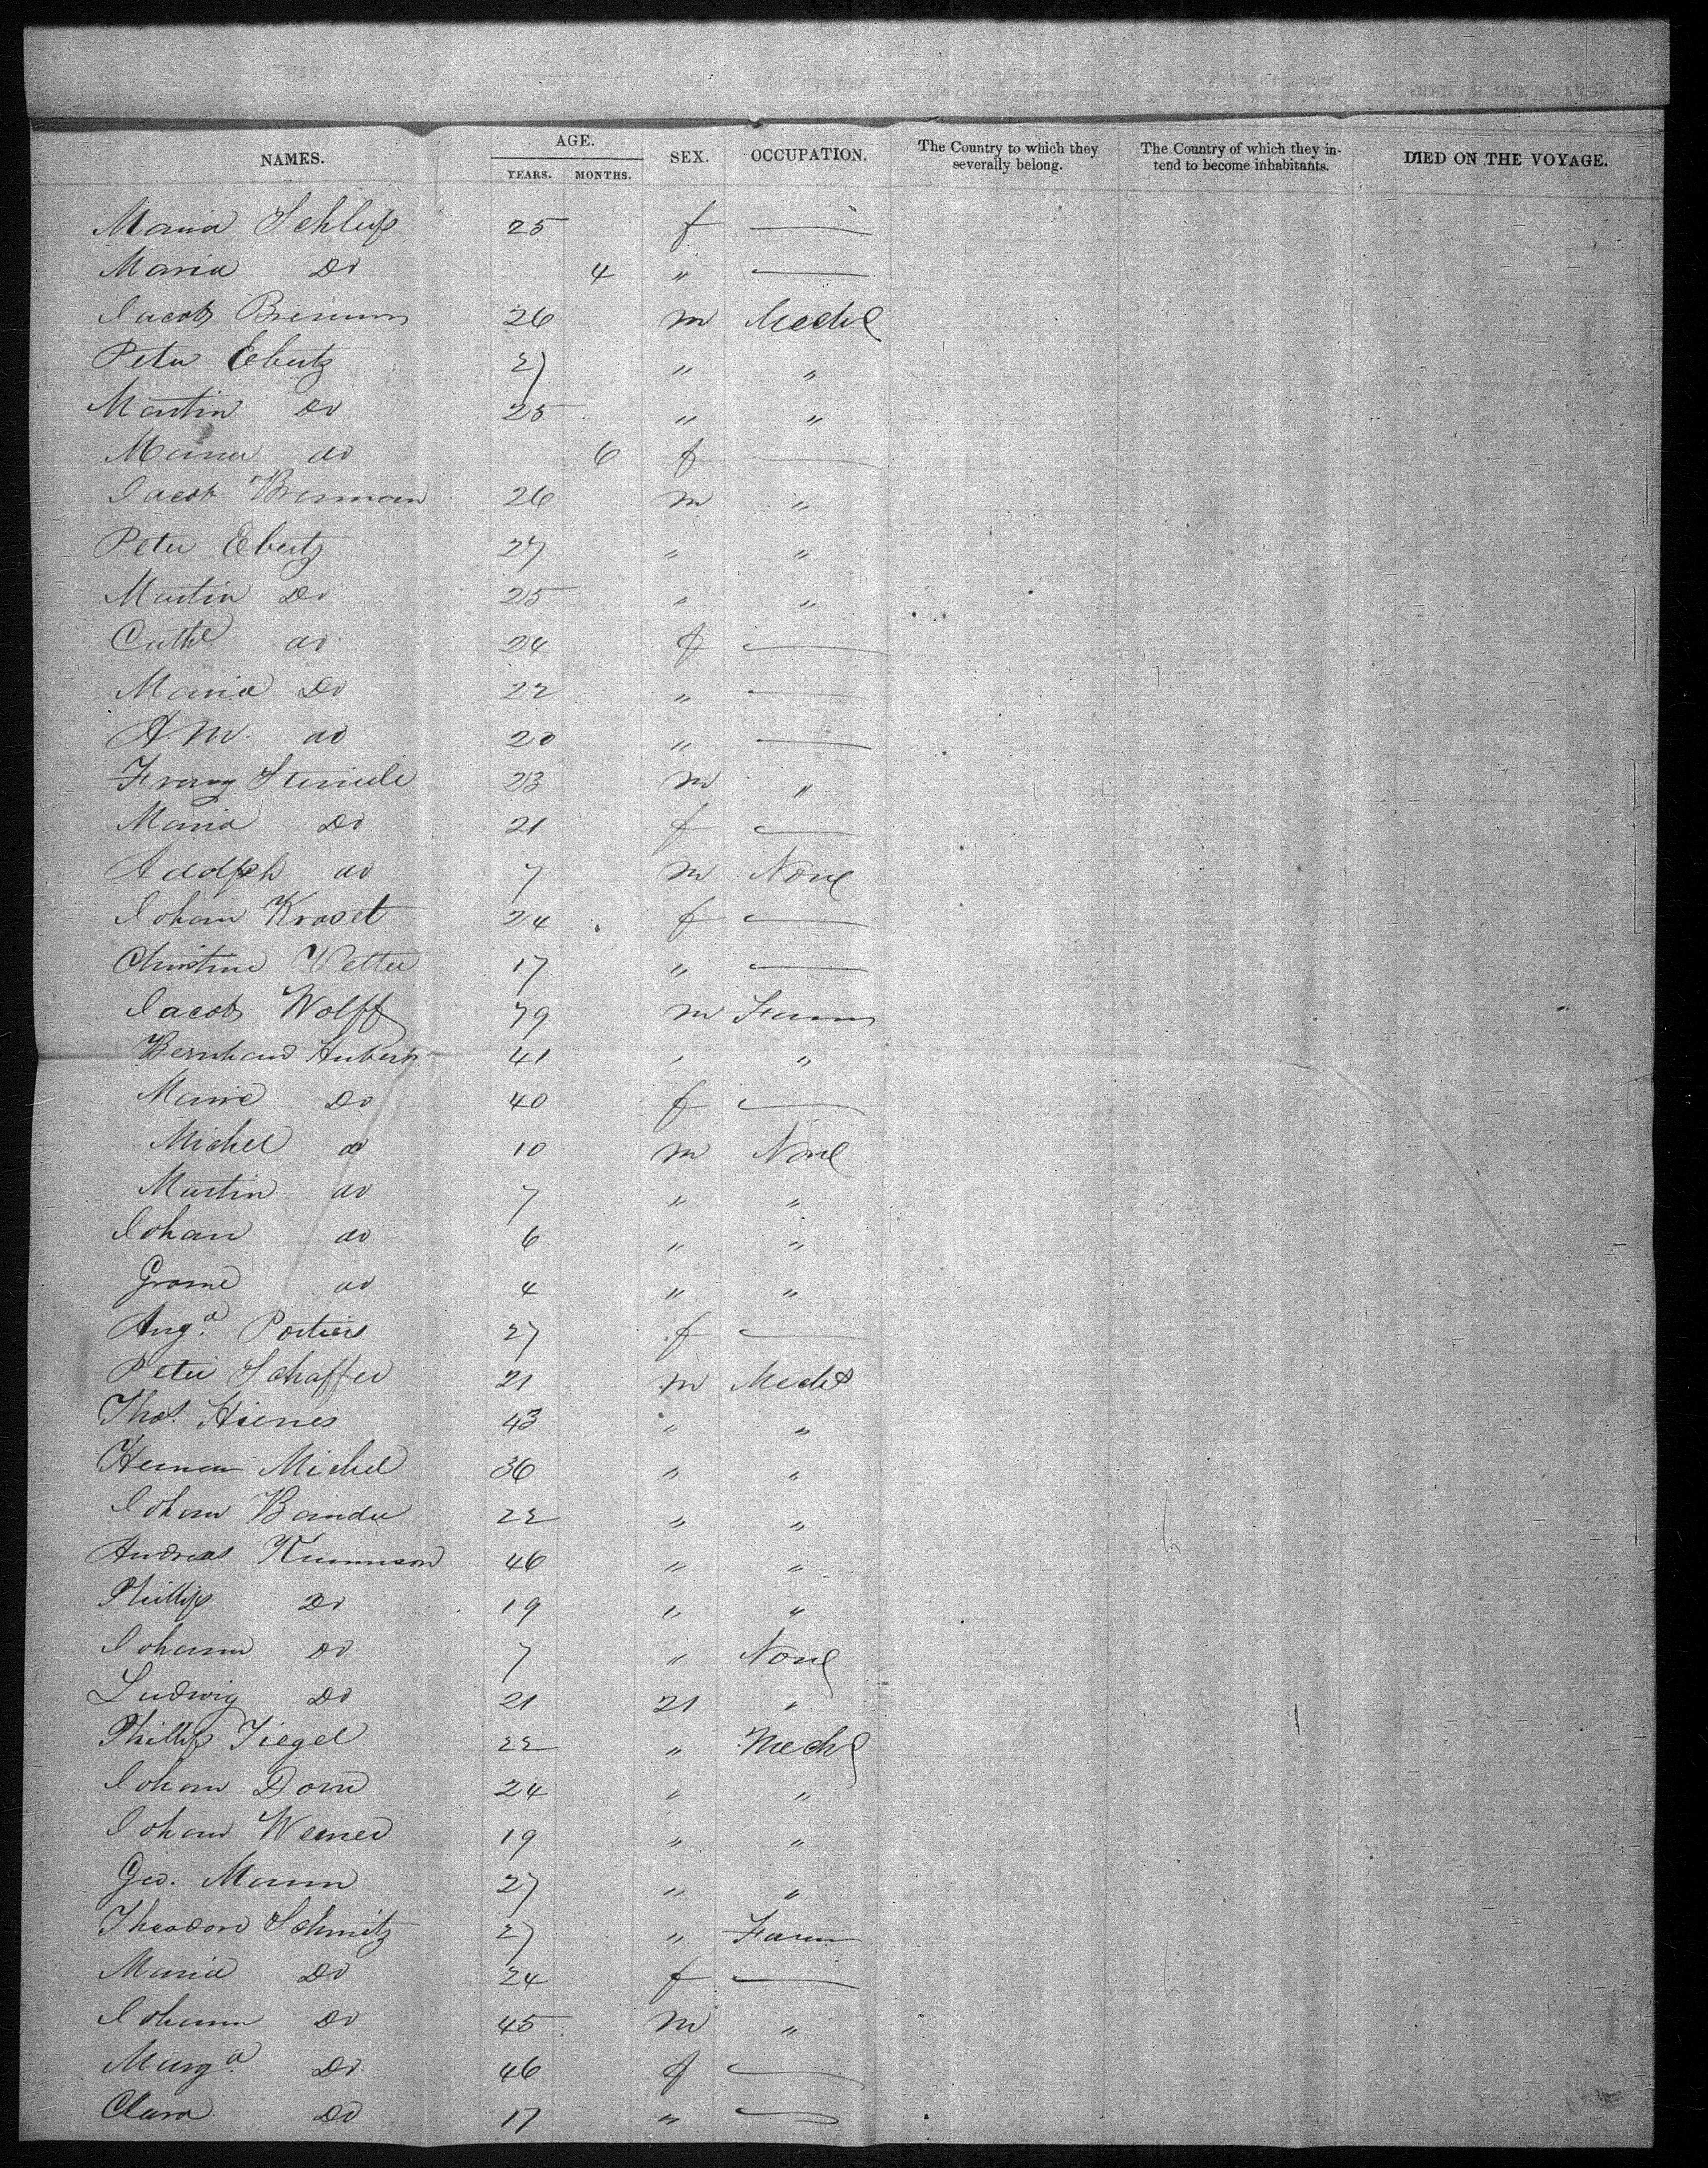 NAMES. AGE. SEX. OCCUPATION. The Country to which they severally belong. The Country of which they intend to become inhabitants. DIED ON THE VOYAGE.
YEARS. MONTHS.
Maria 25 f —
Maria Do 4 " —
Jacob 26 m Mech
Peter Ebertz 27 " "
Martin Do 25 " "
Maria do 6 f —
Jacob Brennan 26 m "
Peter Ebertz 27 " "
Martin Do 25 " "
Cathe do 24 f —
Maria Do 22 " —
A. M. do 20 " —
Franz 23 m "
Maria Do 21 f —
Adolph do 7 m None
Johan 24 f —
Christine Vetter 17 " —
Jacob Wolff 79 m Farm
Bernhard Hubert 41 " "
Marie Do 40 f —
Michel do 10 m None
Martin do 7 " "
Johan do 6 " "
do 4 " "
Anga. 27 f —
Peter Schaffer 21 m Mech
Thos. Hienes 43 " "
Herman Michel 36 " "
Johan Bander 22 " "
Andreas 46 " "
Phillip Do 19 " "
Johann Do 7 " None
Ludwig Do 21 21 "
Phillip Tiegel 22 " Mech
Johan Dorn 24 " "
Johan Werner 19 " "
Geo. Mann 27 " "
Theodore Schmitz 27 " Farm
Maria Do 24 f —
Johann Do 45 m "
Marga. Do 46 f —
Clara Do 17 " —